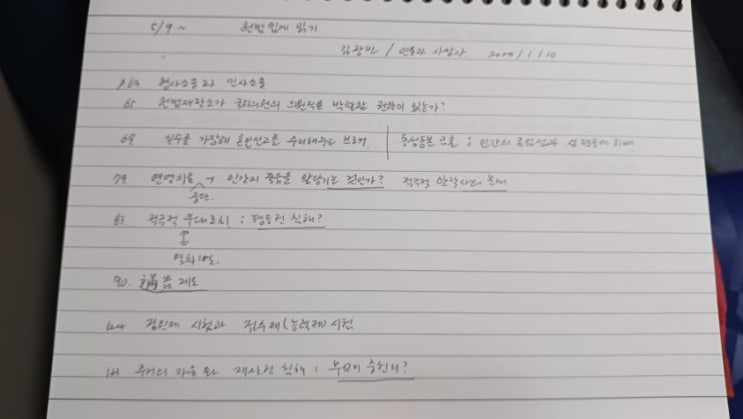 5/9~ 헌법 쉽게 읽기
김광민 / 인물과 사상사. 2017/1/10
p.60 형사소송과 민사소송
65 헌법재판소가 국회의원의 의원직을 박탈할 권한이 있는가?
69 실수를 가장해 혼인신고를 수리해주는 | 동성동본 금혼 : 인간의 존엄성과 성평등에 위배
79 연명치료 → 인간이 죽음을 앞당기는 것인가? 적극적 안락사의 문제
중단.
83 적극적 우대조치 : 평등권 침해?
↕
역차별.
90. 제도
124 정원제 시험과 점수제(능력제) 시험
133 주거의 자유와 재산권 침해 : 부모이 증한다?